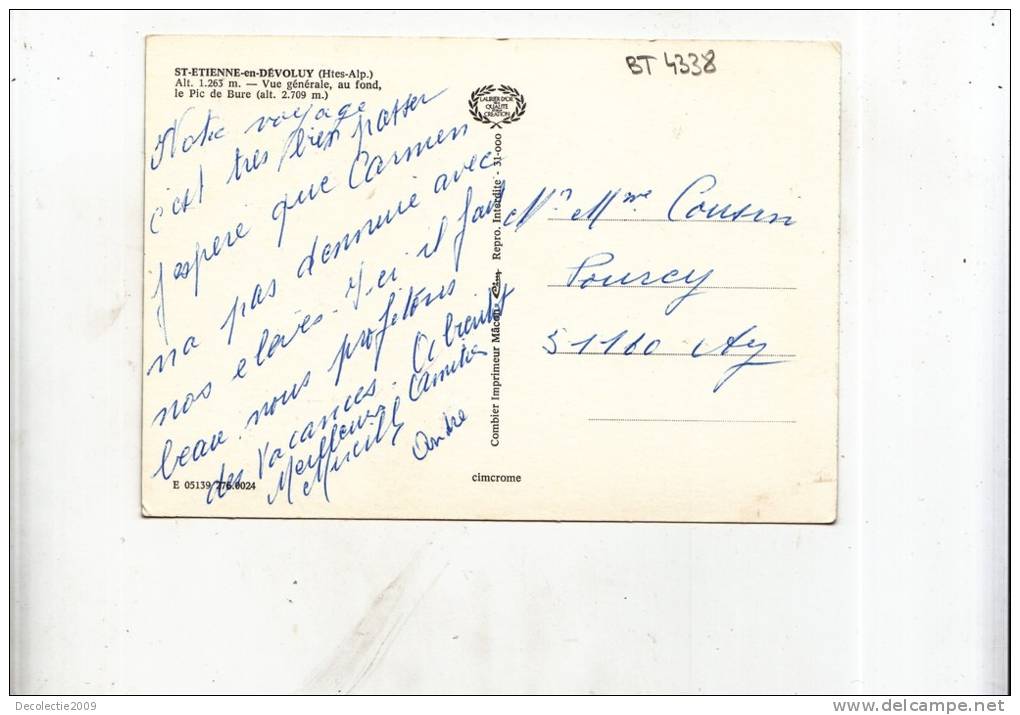 BT 4338
ST-ETIENNE-en-DÉVOLUY (Htes-Alp.)
Alt. 1.263 m. — Vue générale, au fond,
le Pic de Bure (alt. 2.709 m.)
LAURIER D'OR
DE LA
QUALITÉ
CREATION
Notre voyage
c'est tres bien passer
j'espere que Carmen
na pas dennuie avec
nos eleves. Ici il fait
beau. nous profitons
des Vacances. A bientot
Meilleures Amities
André
M. Mme Cousin
Pourcy
51160 Ay
Combier Imprimeur Mâcon Cim Repro. Interdite - 31-000
E 05139 276.0024
cimcrome
Decolectie2009
www.delcampe.net